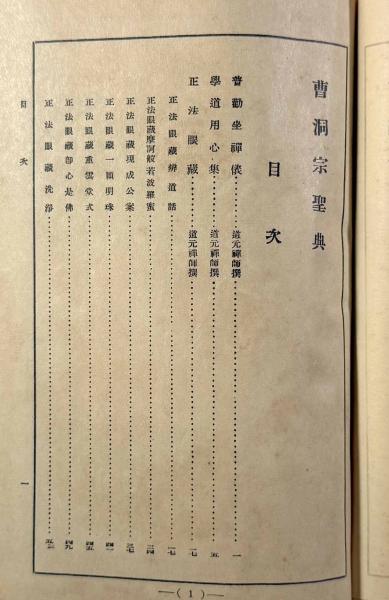 曹洞宗聖典
目次
普勸坐禪儀……道元禪師撰……一
學道用心集……道元禪師撰……五
正法眼藏……道元禪師撰……一七
正法眼藏辨道話……一七
正法眼藏摩訶般若波羅蜜……三四
正法眼藏現成公案……三七
正法眼藏一顆明珠……四一
正法眼藏重雲堂式……四五
正法眼藏卽心是佛……四九
正法眼藏洗淨……五三
目次 一
—( 1 )—